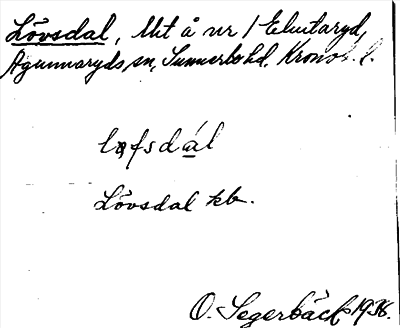 Lövsdal, Mt å nr 1 Elmtaryd,
Agunnaryds sn, Sunnerbo hd. Kronob. l.
løfsdál
Lövsdal kb.
O. Segerbäck 1936.